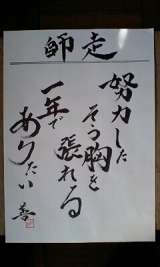 師走
努力した
そう胸を張れる
一年で
ありたい
善